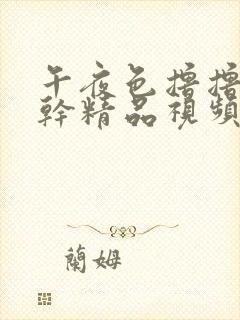 午夜色擼擼
幹精品視頻
蘭姆